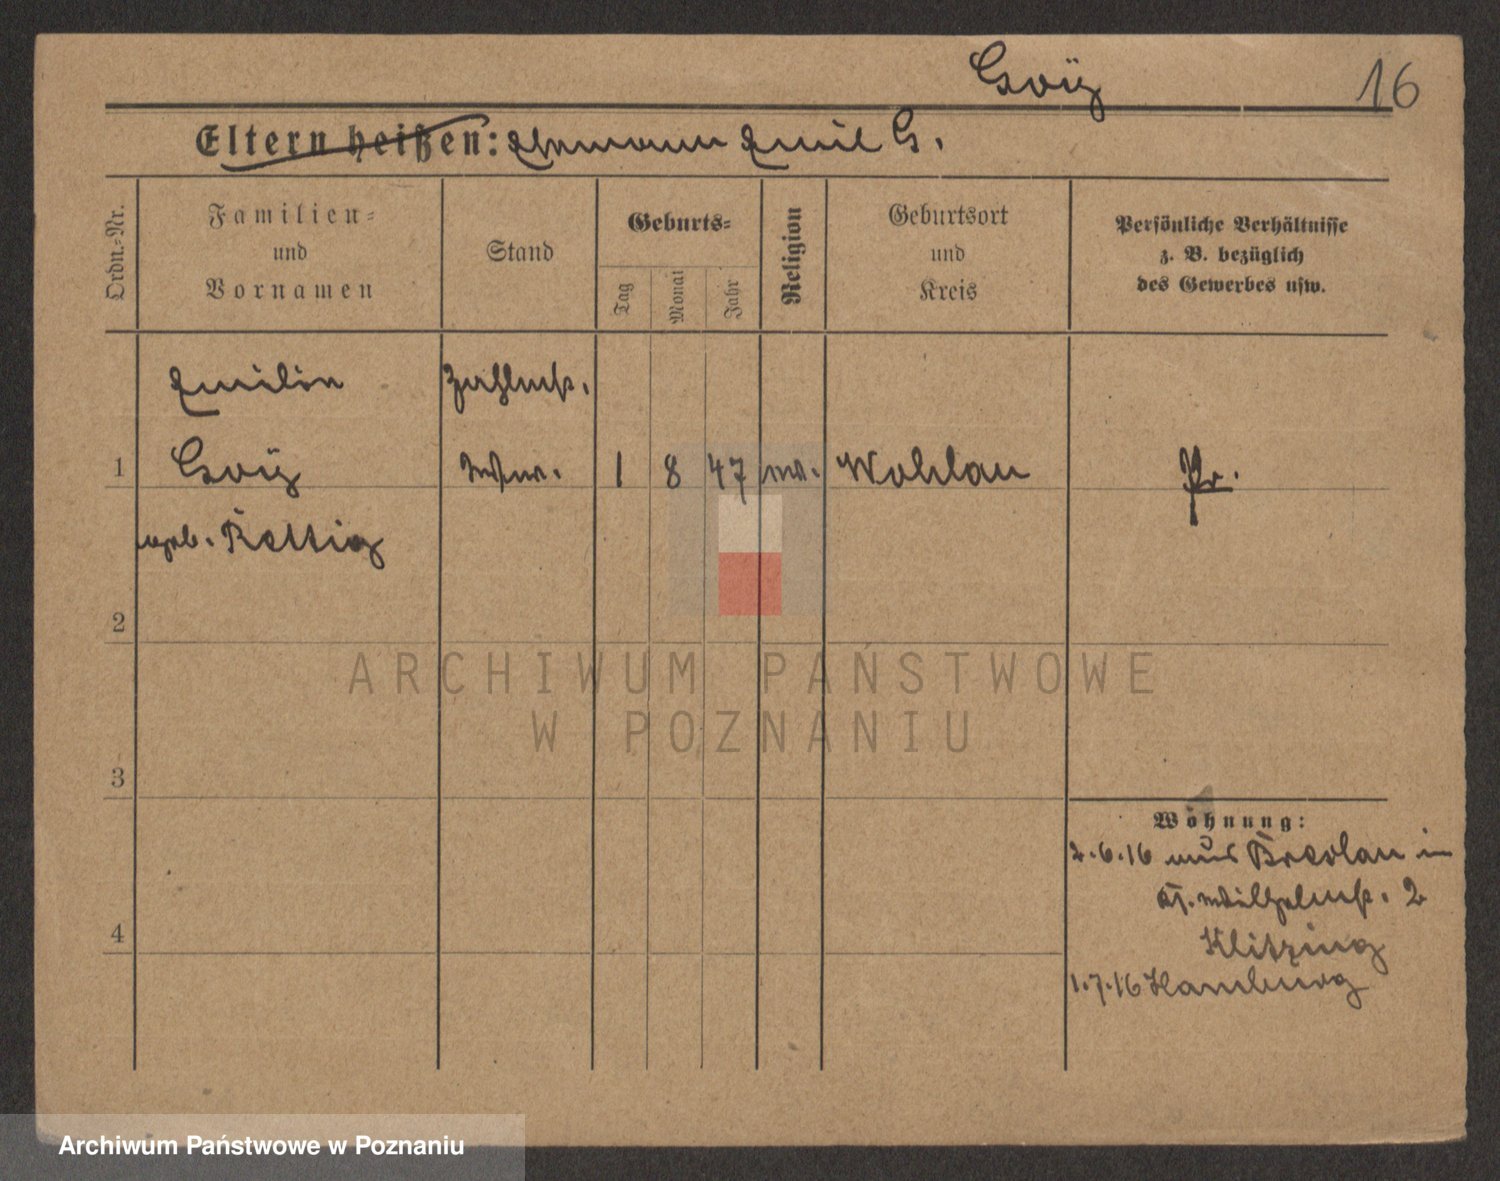 Goÿ 16
Eltern heißen: Ehemann Emil G.
Ordn.=Nr.
Familien=
und
Vornamen
Stand
Geburts=
Tag
Monat
Jahr
Religion
Geburtsort
und
Kreis
Persönliche Verhältnisse
z. B. bezüglich
des Gewerbes usw.
Emilie Zahlmstr.
1 Goÿ Wwe. 1 8 47 ev. Wohlau Pr.
geb. Rettig
2
3
4
Wohnung:
2.6.16 aus Breslau in
Kl. Wilhelmstr. 2
Klitzing
1.7.16 Hamburg
ARCHIWUM PAŃSTWOWE
W POZNANIU
Archiwum Państwowe w Poznaniu